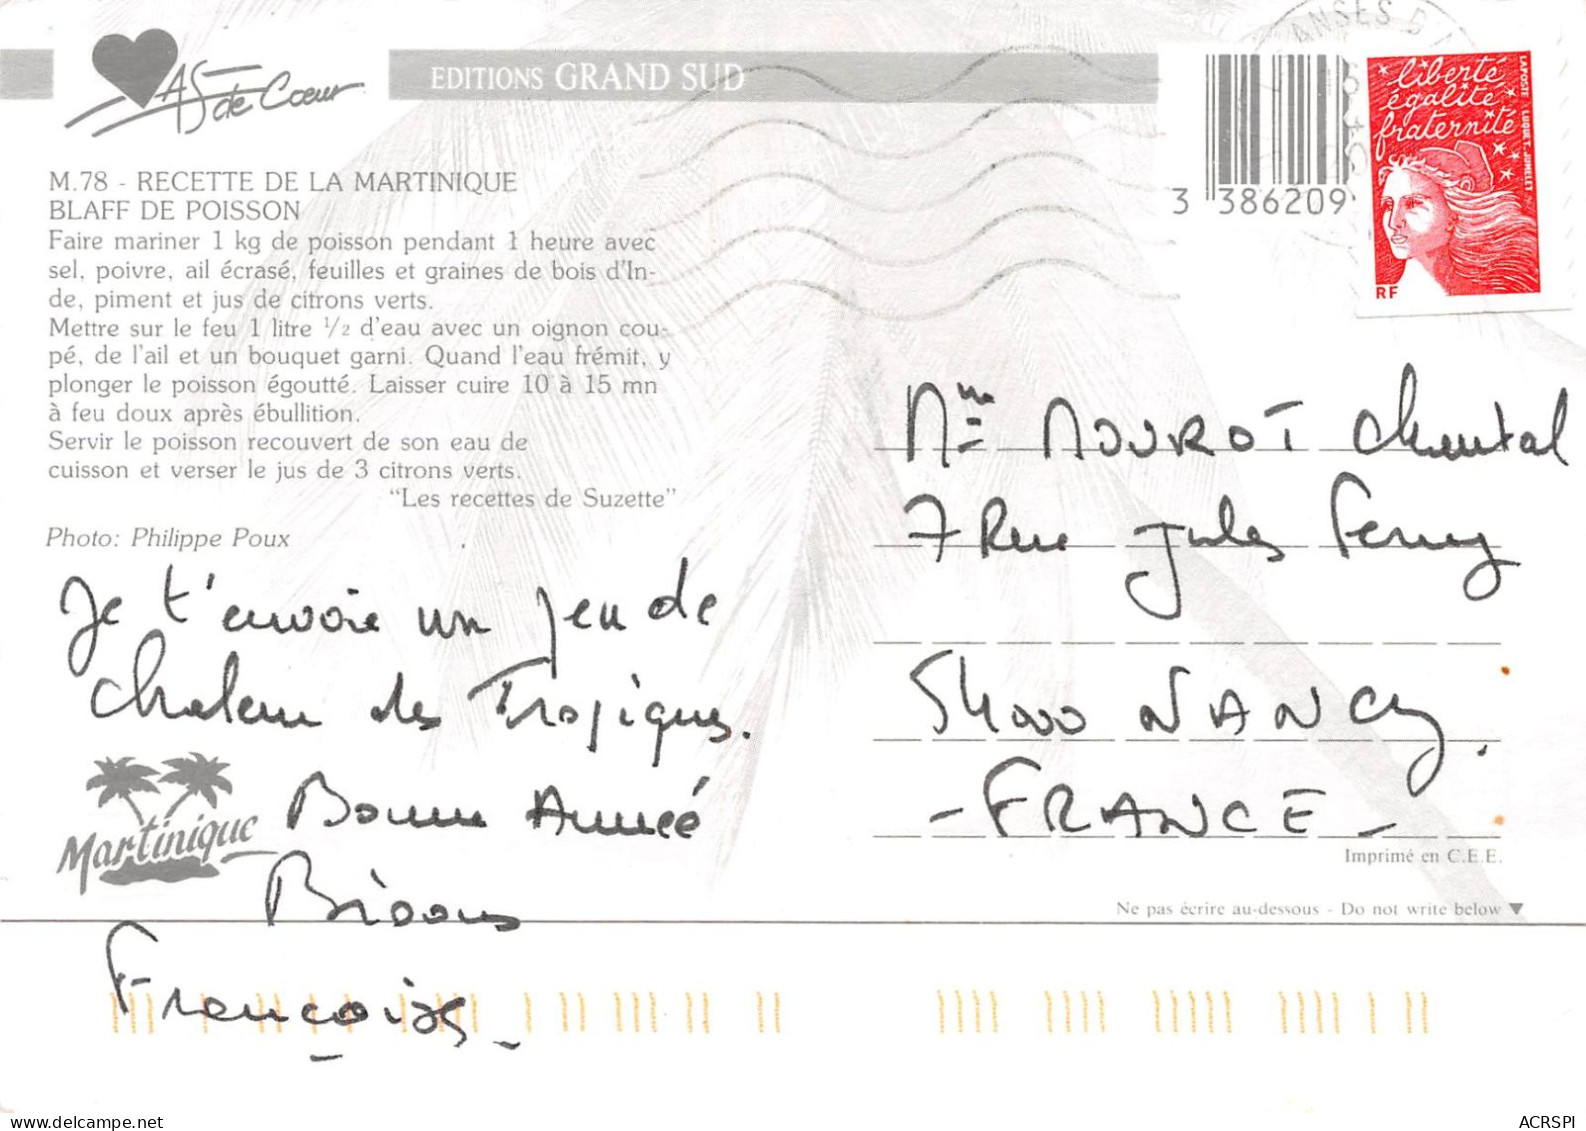 As de Cœur
EDITIONS GRAND SUD
M.78 - RECETTE DE LA MARTINIQUE
BLAFF DE POISSON
Faire mariner 1 kg de poisson pendant 1 heure avec
sel, poivre, ail écrasé, feuilles et graines de bois d'In-
de, piment et jus de citrons verts.
Mettre sur le feu 1 litre ½ d'eau avec un oignon cou-
pé, de l'ail et un bouquet garni. Quand l'eau frémit, y
plonger le poisson égoutté. Laisser cuire 10 à 15 mn
à feu doux après ébullition.
Servir le poisson recouvert de son eau de
cuisson et verser le jus de 3 citrons verts.
"Les recettes de Suzette"
Photo: Philippe Poux
Je t'envoie un peu de
Chaleur des Tropiques.
Bonne Année
Bisous
Françoise
Martinique
ANSES D
3 386209
liberté
égalité
fraternité
LAPOSTE LUQUET-JUMELET
RF
Mme MOUROT Chantal
7 Rue Jules Ferry
54000 NANCY.
- FRANCE -
Imprimé en C.E.E.
Ne pas écrire au-dessous - Do not write below ▼
ACRSPI